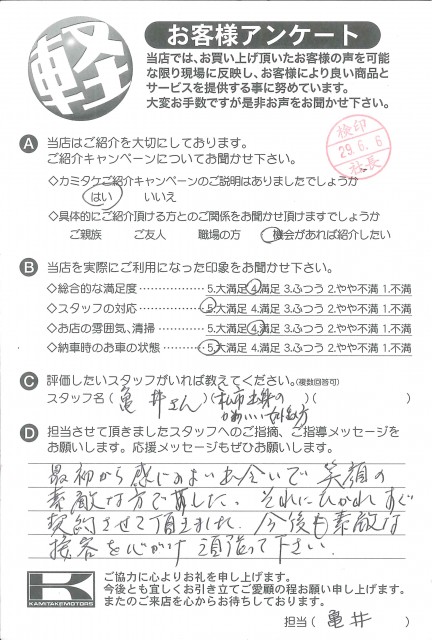 軽
お客様アンケート
当店では、お買い上げ頂いたお客様の声を可能
な限り現場に反映し、お客様により良い商品と
サービスを提供する事に努めています。
大変お手数ですが是非お声をお聞かせ下さい。
検印
29.6.6
社長
A 当店はご紹介を大切にしております。
ご紹介キャンペーンについてお聞かせ下さい。
◇カミタケご紹介キャンペーンのご説明はありましたでしょうか
はい いいえ
◇具体的にご紹介頂ける方とのご関係をお聞かせ頂けますでしょうか
ご親族 ご友人 職場の方 機会があれば紹介したい
B 当店を実際にご利用になった印象をお聞かせ下さい。
◇総合的な満足度 ……………… 5.大満足 4.満足 3.ふつう 2.やや不満 1.不満
◇スタッフの対応 ……………… 5.大満足 4.満足 3.ふつう 2.やや不満 1.不満
◇お店の雰囲気、清掃 ………… 5.大満足 4.満足 3.ふつう 2.やや不満 1.不満
◇納車時のお車の状態 ………… 5.大満足 4.満足 3.ふつう 2.やや不満 1.不満
C 評価したいスタッフがいれば教えてください。(複数回答可)
スタッフ名 ( 亀井さん )( 出身の )( )
かわいい 方
D 担当させて頂きましたスタッフへのご指摘、ご指導メッセージを
お願いします。応援メッセージもぜひお願いします。
最初から感じのよいお会いで 笑顔の
素敵な方でした。それにひかれすぐ
契約させて頂きました。今後も素敵な
接客を心がけ 頑張って下さい。
K
KAMITAKEMOTORS
ご協力に心よりお礼を申し上げます。
今後とも宜しくお引き立てご愛顧の程お願い申し上げます。
またのご来店を心からお待ちしております。
担当 ( 亀井 )